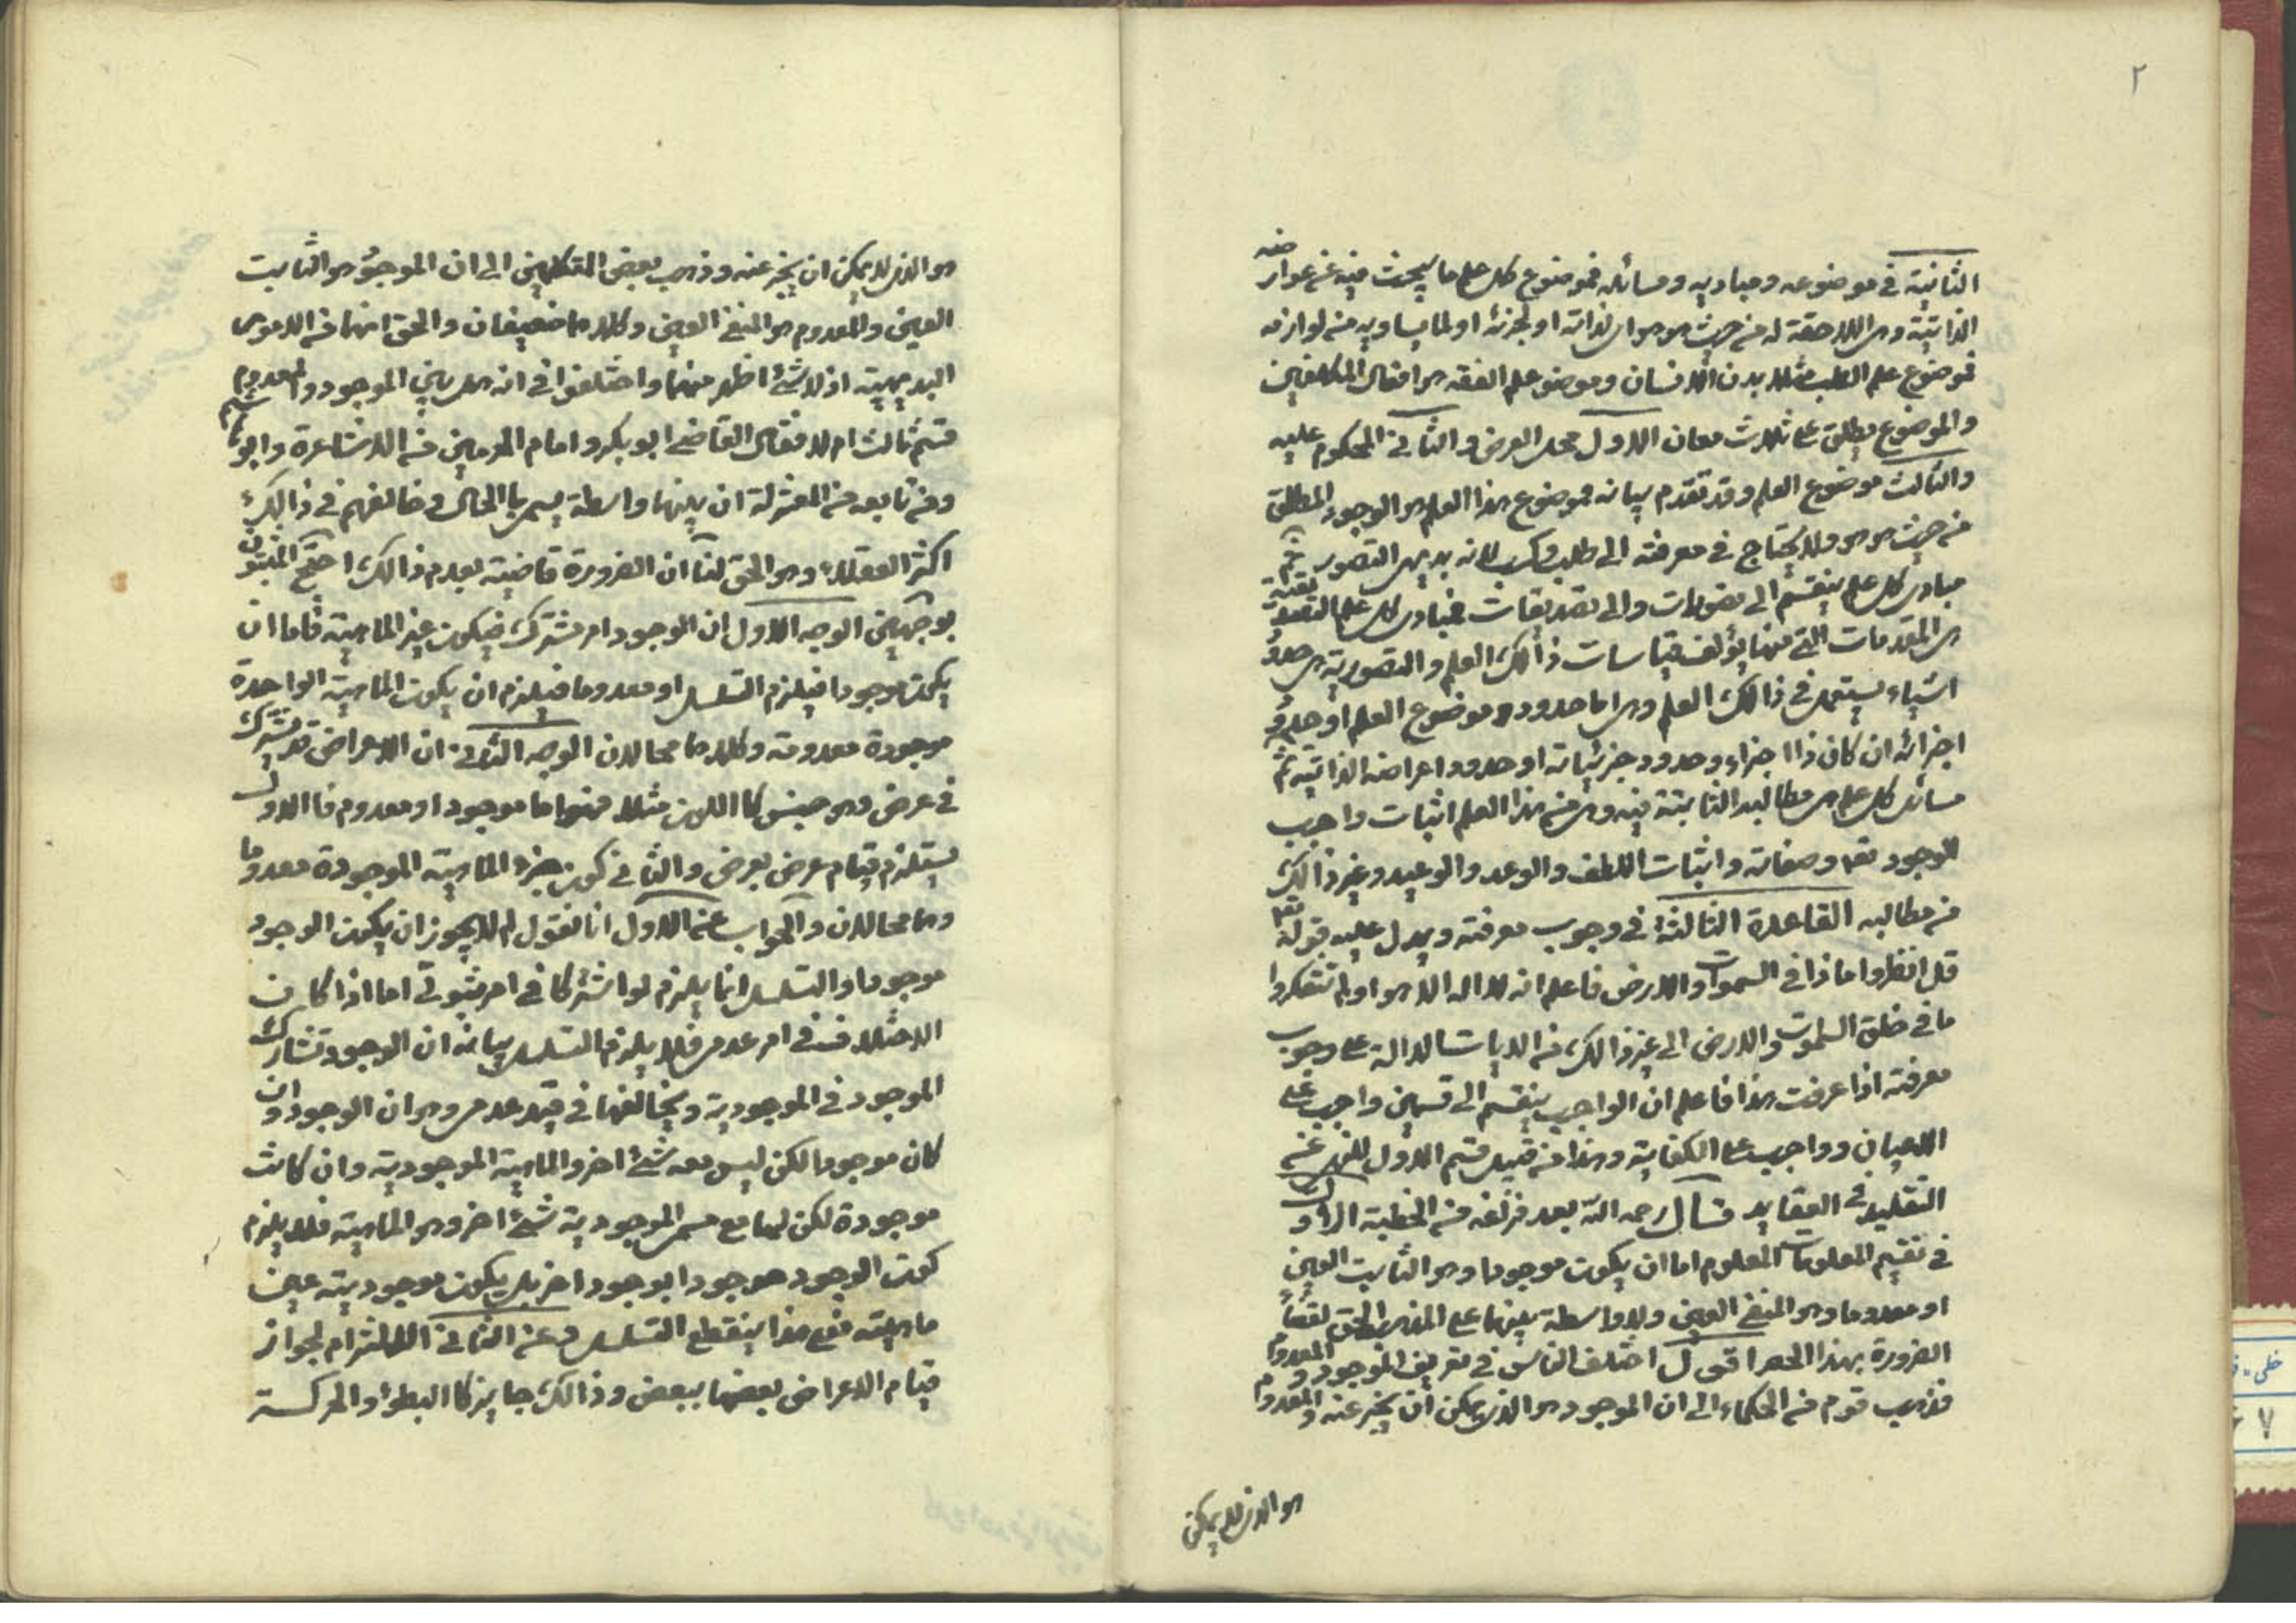 ٢
الثانية في موضوعه ومباديه ومسائله فموضوع كل علم ما يبحث فيه عن عوارضه
الذاتية وهى اللاحقة له من حيث هو هو اى لذاته او لجزئه او لما يساويه من لوازمه
فموضوع علم الطب مثلا بدن الانسان وموضوع علم الفقه هو افعال المكلفين
والموضوع يطلق على ثلاث معان الاول محل العرض والثاني المحكوم عليه
والثالث موضوع العلم وقد تقدم بيانه فموضوع هذا العلم هو الوجود المطلق
من حيث هو هو ولا يحتاج في معرفته الى طلب وكسب لانه بديهى التصور ثم
مبادى كل علم ينقسم الى تصورات والى تصديقات فمبادى كل علم التصديقية
هى المقدمات التي منها يؤلف قياسات ذالك العلم والتصورية هى حدود
اشياء يستعمل في ذالك العلم وهى اما حدود موضوع العلم او حدود
اجزائه ان كان ذا اجزاء وحدود جزئياته او حدود اعراضه الذاتيه ثم
مسائل كل علم هى مطالبه الثابتة فيه وهى من هذا العلم اثبات واجب
الوجود تعه وصفاته واثبات اللطف والوعد والوعيد وغير ذالك
من مطالبه القاعدة الثالثة في وجوب معرفته ويدل عليه قوله تعه
قل انظروا ماذا في السموات والارض فاعلم انه لا اله الا هو اولم تتفكروا
ما في خلق السموات والارض الى غير ذالك من الايات الدالة على وجوب
معرفته اذا عرفت هذا فاعلم ان الواجب ينقسم الى قسمين واجب على
الاعيان وواجب على الكفاية وهذا من قبيل قسم الاول للنهى عن
التقليد في العقايد قال رحمه الله بعد فراغه من الخطبة الاول
في تقسيم المعلومات المعلوم اما ان يكون موجودا وهو الثابت العين
او معدوما وهو المنفي العين ولا واسطة بينهما على المذهب الحق لقضاء
الضرورة بهذا الحصر اقول اختلف الناس في تعريف الموجود والمعدوم
فذهب قوم من الحكماء الى ان الموجود هو الذى يمكن ان يخبر عنه والمعدوم
هو الذى لا يمكن
هو الذى لا يمكن ان يخبر عنه وذهب بعض المتكلمين الى ان الموجود هو الثابت
العين والمعدوم هو المنفي العين وكلاهما ضعيفان والحق انهما من الامور
البديهية اذ لا شئ اظهر منهما واختلفوا في انه هل بين الموجود والمعدوم
قسم ثالث ام لا فقال القاضي ابو بكر وامام الحرمين من الاشاعرة وابو هاشم
ومن تابعه من المعتزلة ان بينهما واسطة يسمى بالحال وخالفهم في ذالك
اكثر العقلاء وهو الحق لنا ان الضرورة قاضية بعدم ذالك احتج المثبتون
بوجهين الوجه الاول ان الوجود امر مشترك فيكون غير الماهية فاما ان
يكون موجودا فيلزم التسلسل او معدوما فيلزم ان يكون الماهية الواحدة
موجودة معدومة وكلاهما محالان الوجه الثاني ان الاعراض قد يشترك
في عرض وهو جنس كاللون مثلا فهو اما موجود او معدوم فالاول
يستلزم قيام عرض بعرض والثاني كون جزء الماهية الموجودة معدوما
وهما محالان والجواب عن الاول انا نقول لم لا يجوز ان يكون الوجود
موجودا والتسلسل انما يلزم لو اشتركا في امر ثبوتي اما اذا كان
الاختلاف في امر عدمى فلا يلزم التسلسل بيانه ان الوجود تشارك
الموجود في الموجودية ويخالفها في قيد عدمى وهو ان الوجود وان
كان موجودا لكن ليس معه شئ اخر والماهية الموجودية وان كانت
موجودة لكن لها مع مسمى الموجودية شئ اخر وهو الماهية فلا يلزم
كون الوجود موجودا بوجود اخر بل يكون موجوديته عين
ماهيته فمع هذا ينقطع التسلسل وعن الثاني الالتزام لجواز
قيام الاعراض بعضها ببعض وذالك جايز كالبطؤ والحركة